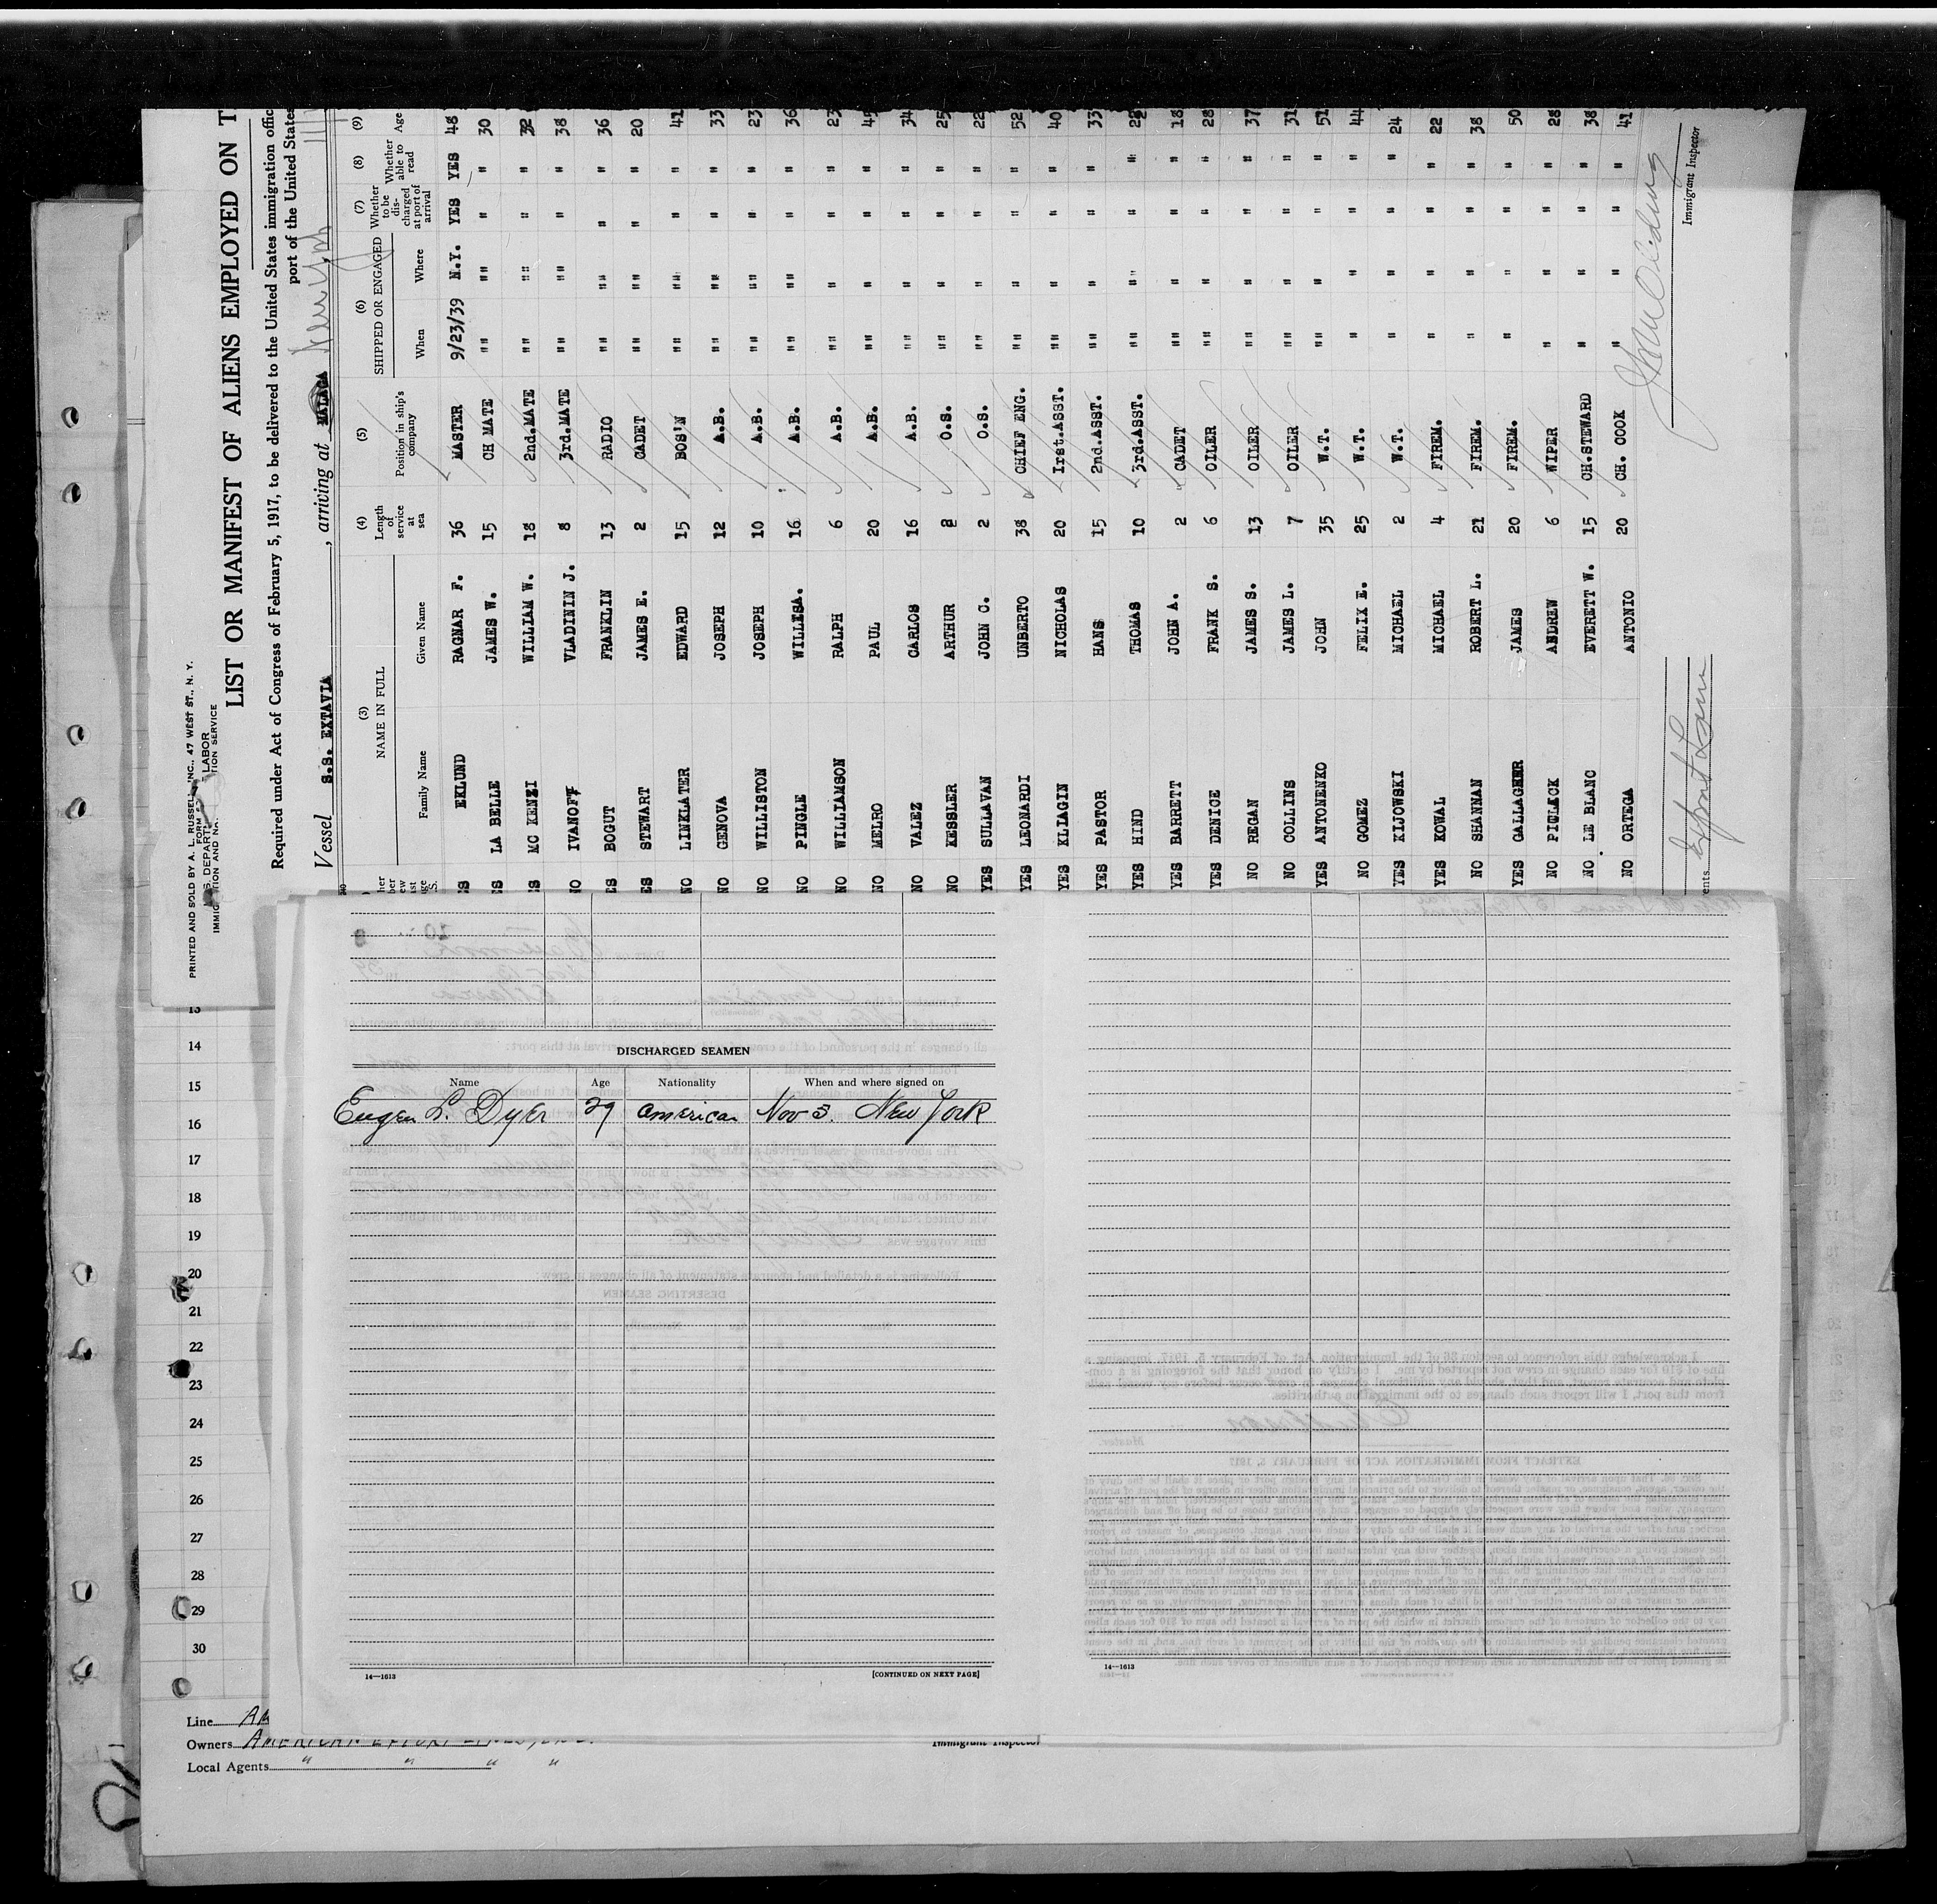 PRINTED AND SOLD BY A. L. RUSSELL, INC., 47 WEST ST., N. Y.
LABOR
LIST OR MANIFEST OF ALIENS EMPLOYED ON T
Required under Act of Congress of February 5, 1917, to be delivered to the United States immigration offic
port of the United States
Vessel S.S. EXTAVIA, arriving at MALAGA New York
(3) (4) (5) (6) (7) (8) (9)
NAME IN FULL Length of service at sea Position in ship's company SHIPPED OR ENGAGED Whether to be discharged at port of arrival Whether able to read Age
Family Name Given Name When Where
ES EKLUND RAGNAR F. 36 MASTER 9/23/39 N.Y. YES YES 48
ES LA BELLE JAMES W. 15 CH MATE "" "" " " 30
ES MC KENZI WILLIAM W. 18 2nd.MATE "" "" " " 32
NO IVANOFF VLADININ J. 8 3rd.MATE "" "" " " 38
ES BOGUT FRANKLIN 13 RADIO "" "" " " 36
ES STEWART JAMES E. 2 CADET "" "" " " 20
NO LINKLATER EDWARD 15 BOS'N "" "" " " 41
NO GENOVA JOSEPH 12 A.B. "" "" " " 33
NO WILLISTON JOSEPH 10 A.B. "" "" " " 23
NO PINGLE WILLESA. 16 A.B. "" "" " " 36
NO WILLIAMSON RALPH 6 A.B. "" " " " 23
NO MELRO PAUL 20 A.B. "" " " " 45
NO VALEZ CARLOS 16 A.B. "" " " " 34
NO KESSLER ARTHUR 2 O.S. "" " " " 25
YES SULLAVAN JOHN C. 2 O.S. "" " " " 22
YES LEONARDI UNBERTO 38 CHIEF ENG. "" " " " 52
YES KLIAGIN NICHOLAS 20 1rst.ASST. "" " " " 40
YES PASTOR HANS 15 2nd.ASST. "" " " " 33
YES HIND THOMAS 10 3rd.ASST. "" " " " 22
YES BARRETT JOHN A. 2 CADET "" " " " 18
YES DENICE FRANK S. 6 OILER "" " " " 28
NO REGAN JAMES S. 13 OILER "" " " " 37
NO COLLINS JAMES L. 7 OILER "" " " " 31
YES ANTONENKO JOHN 35 W.T. "" " " " 51
NO GOMEZ FELIX E. 25 W.T. " " " " 44
YES KIJOWSKI MICHAEL 2 W.T. " " " " 24
YES KOWAL MICHAEL 4 FIREM. " " " " 22
NO SHANNAN ROBERT L. 21 FIREM. " " " " 38
YES GALLAGHER JAMES 20 FIREM. " " " " 50
NO PIULACK ANDREW 6 WIPER " " " " 28
NO LE BLANC EVERETT W. 15 CH.STEWARD " " " " 38
NO ORTEGA ANTONIO 20 CH. COOK " " " " 41
Immigrant Inspector
Export Lines
DISCHARGED SEAMEN
Name Age Nationality When and where signed on
Eugen L. Dyer 29 American Nov 3. New York
14—1613 [CONTINUED ON NEXT PAGE]
14—1613
13
14
15
16
17
18
19
20
21
22
23
24
25
26
27
28
29
30
Line AM
Owners AMERICAN EXPORT LINES, INC.
Local Agents " " " "
Immigrant Inspector